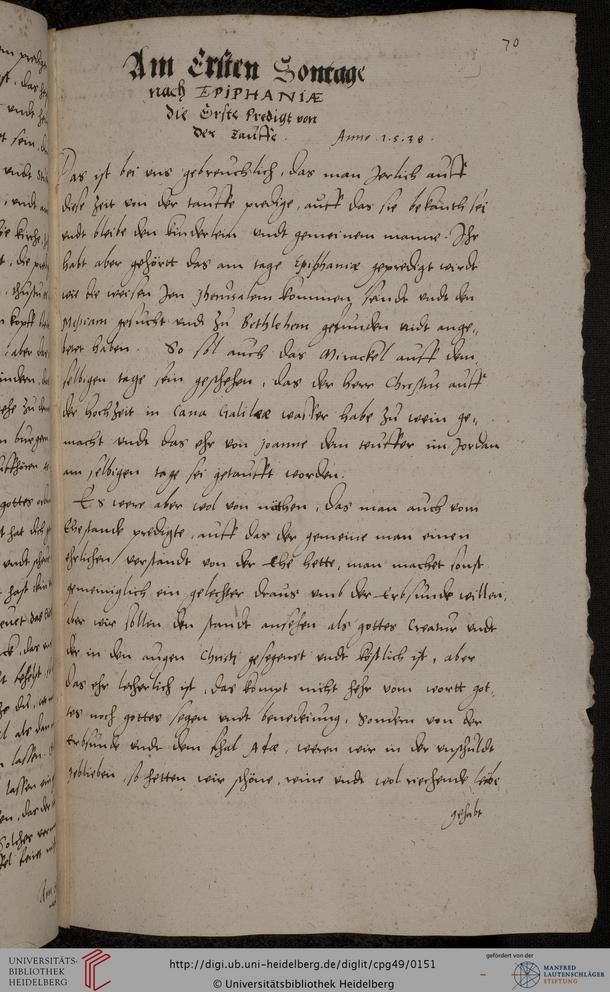 70
Am Ersten Sontage
nach EPIPHANIÆ
die Erste Predigt von
der Tauffe. Anno 1.5.38.
Das ist bei uns gebreuchlich, das man Jerlich auff
diese Zeit von der tauffe predige, auff das sie bekanth sei
undt bleibe den kinderlein undt gemeinem manne. Ihr
habt aber gehörtt das am tage Epiphaniæ gepredigt wirdt
wie die weisen Jen Jherusalem kommen seindt undt den
Messiam gesucht undt zu Bethlehem gefunden undt ange„
betet haben. So sol auch das Mirackel auff dem„
selbigen tage sein geschehen, das der herr Christus auff
der hochzeit in Cana Galileæ wasser habe zu wein ge„
macht undt das ehr von Joanne dem teuffer im Jordan
am selbigen tage sei getaufft worden.
Es were aber wol von nöthen, das man auch vom
Ehestande predigte, auff das der gemeine man einen
ehrlichen verstandt von der Ehe hette, man machet sonst
gemeiniglich ein gelechter draus umb der Erbsunde willen,
aber wir sollen den standt ansehen als gottes Creatur undt
der in den augen Christi gesegenet undt köstlich ist, aber
das ehr lecherlich ist, das kömpt nicht hehr vom wortt got„
tes noch gottes segen undt benedeiung, sondern von der
Erbsunde undt dem fhal Adæ, weren wir in der unschuldt
geblieben, so hetten wir schöne, reine undt wol riechende leibe
gehabt
UNIVERSITÄTS-
BIBLIOTHEK
HEIDELBERG
http://digi.ub.uni-heidelberg.de/diglit/cpg49/0151
© Universitätsbibliothek Heidelberg
gefördert von der
MANFRED
LAUTENSCHLÄGER
STIFTUNG